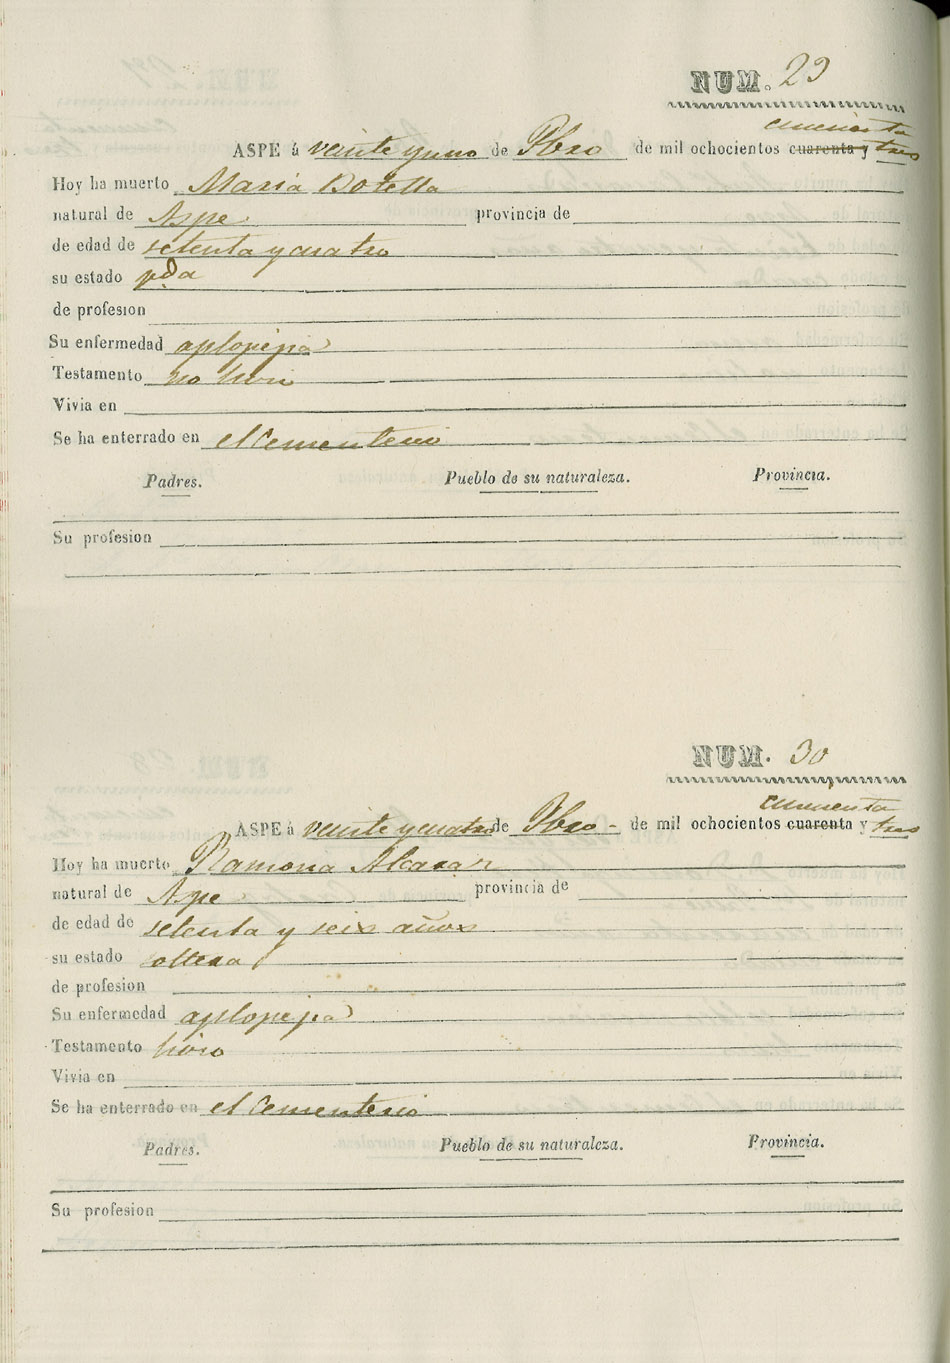 NUM. 29
cincuenta
ASPE á veinte y uno de Fbro de mil ochocientos cuarenta y tres
Hoy ha muerto Maria Botella
natural de Aspe provincia de
de edad de setenta y cuatro
su estado vda
de profesion
Su enfermedad aplopejia
Testamento no hizo
Vivia en
Se ha enterrado en el Cementerio
Padres. Pueblo de su naturaleza. Provincia.
Su profesion
NUM. 30
cincuenta
ASPE á veinte y cuatro de Fbro de mil ochocientos cuarenta y tres
Hoy ha muerto Ramona Alcazar
natural de Aspe provincia de
de edad de setenta y seis años
su estado soltera
de profesion
Su enfermedad aplopejia
Testamento hizo
Vivia en
Se ha enterrado en el Cementerio
Padres. Pueblo de su naturaleza. Provincia.
Su profesion